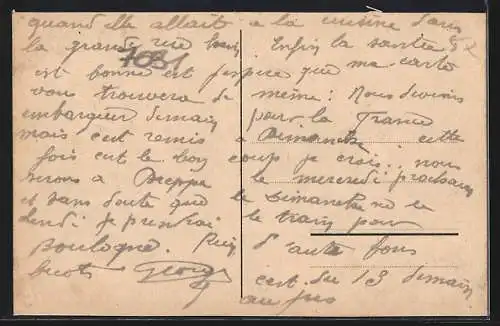 quand elle allait à la cuisine dans
la grande rue Enfin la santée
1031
est bonne et j'espère que ma carte
vous trouvera de même : Nous devions
embarquer demain pour la France
mais c'est remis à Dimanche cette
fois c'est le bon coup je crois... nous
serons à Dieppe le mercredi prochain
et sans doute que le Dimanche ou le
Lundi je prendrai le train pour
Boulogne. Rien d'autre pour
Georges
c'est du 13 demain
au jus